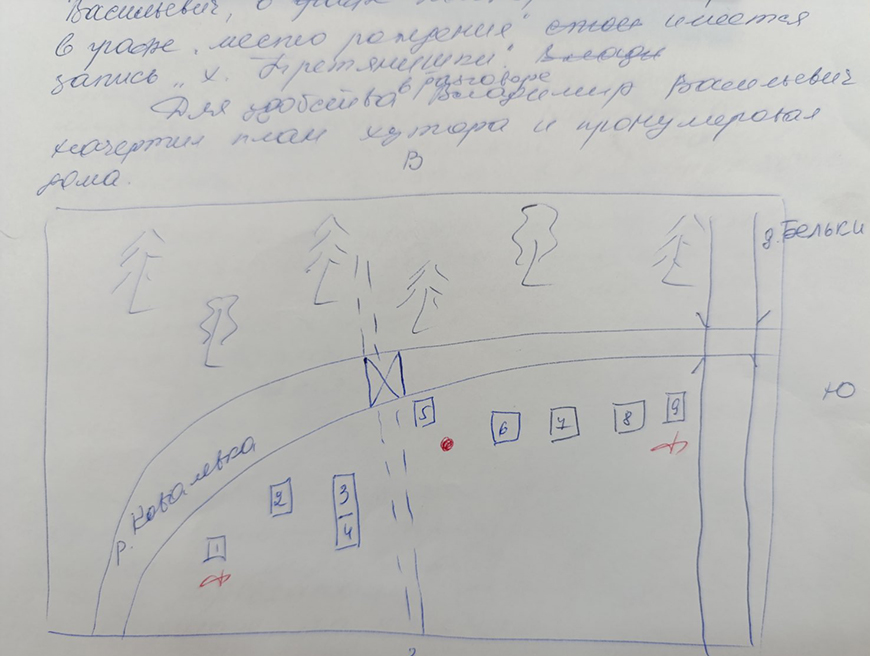 Васильевич, в графе
в графе „место рождения" имеется
запись „х. Кретянишки".
в разговоре
Для удобства Владимир Васильевич
начертил план хутора и пронумеровал
дома.
В
д. Бельки
Ю
р. Ковалевка
5
6
7
8
9
2
3
4
1